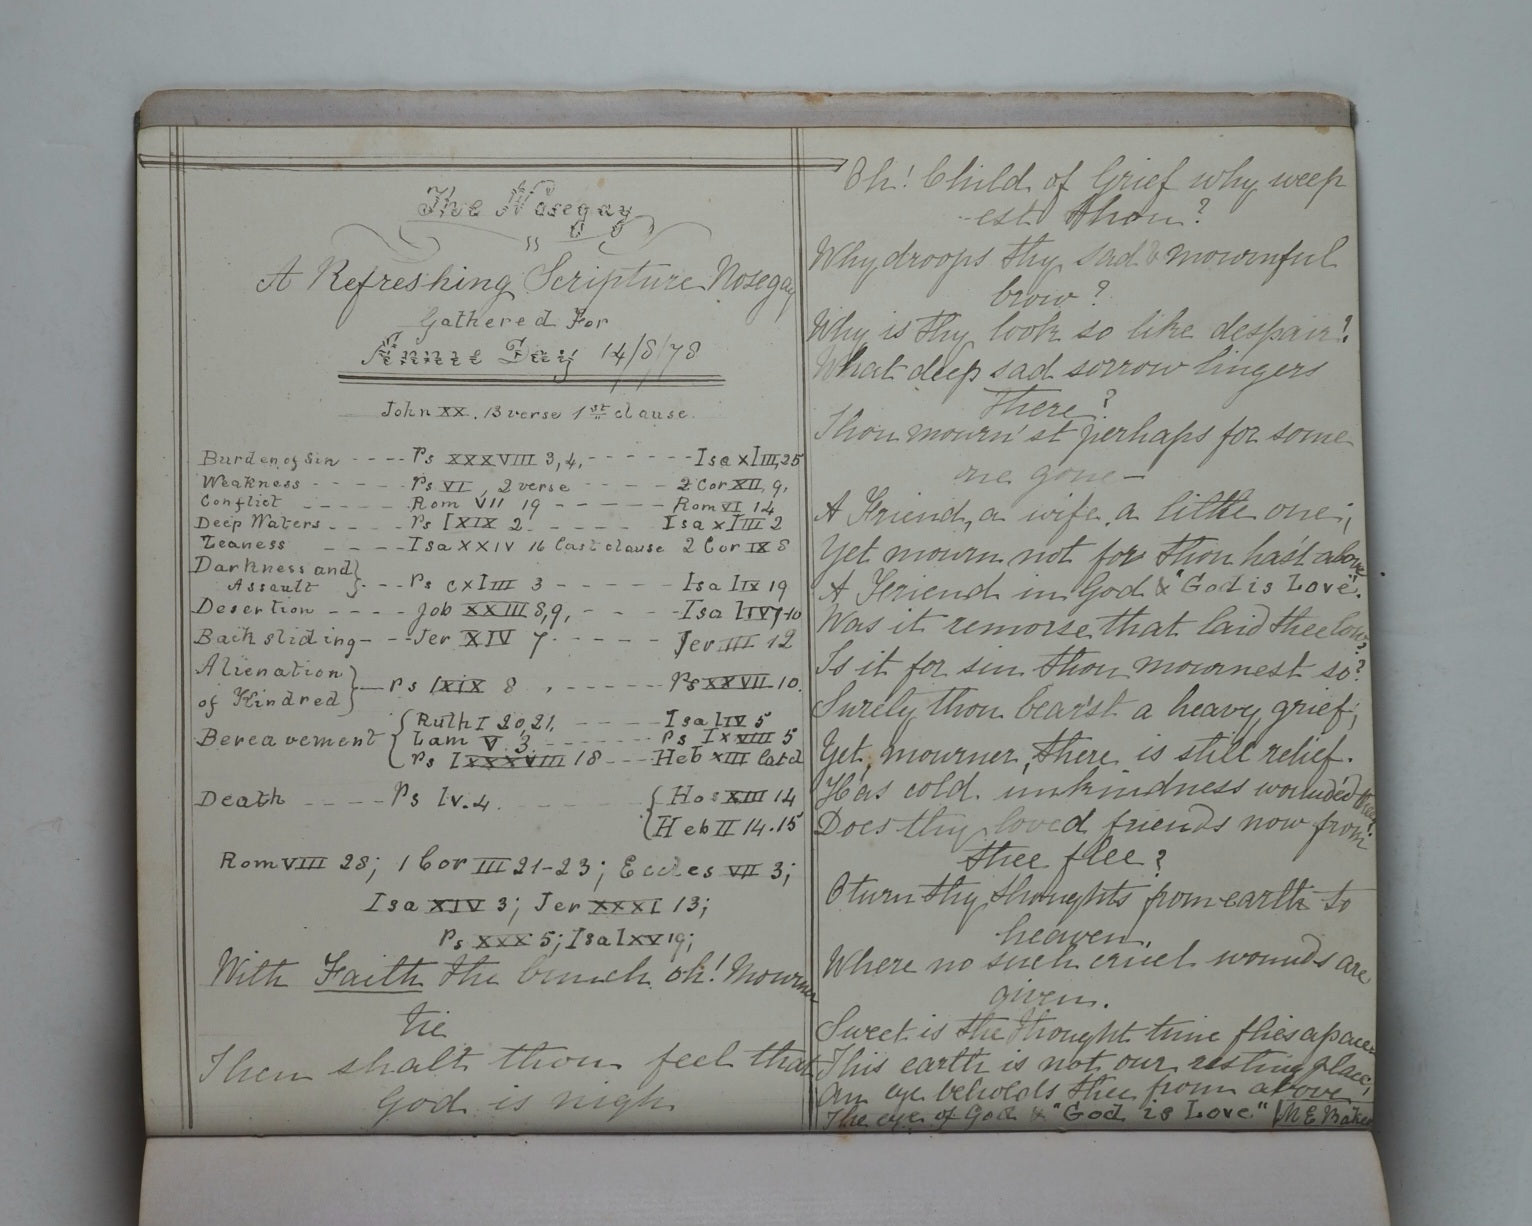 The Nosegay
A Refreshing Scripture Nosegay
Gathered For
Annie Day 14/8/78
John XX. 13 verse 1st clause.
Burden of Sin ---- Ps XXXVIII 3,4, ------ Isa xlIII,25
Weakness ----- Ps VI, 2 verse ----- 2 Cor XII, 9,
Conflict ----- Rom VII 19 ------ Rom VI 14
Deep Waters ---- Ps lXIX 2 ------ Isa xlIII 2
Leaness ---- Isa XXIV 16 last clause 2 Cor IX 8
Darkness and
Assault } --- Ps cxlIII 3 ------ Isa lIX 19
Desertion ---- Job XXIII 8,9, ---- Isa lIV 7-10
Backsliding --- Jer XIV 7 ------ Jer III 12
Alienation
of Kindred } -- Ps lXIX 8 , ------ Ps XXVII 10.
{ Ruth I 20,21, ---- Isa lIV 5
Bereavement { Lam V. 3. ------ Ps lXVIII 5
{ Ps lXXXVIII 18 --- Heb XIII
Death ---- Ps lv. 4. ------ { Hos XIII 14
{ Heb II 14.15
Rom VIII 28; 1 Cor III 21-23; Eccles VII 3;
Isa XIV 3; Jer XXXI 13;
Ps XXX 5; Isa lXV 19;
With Faith the bunch oh! Mourner
tie
Then shalt thou feel that
God is nigh
Oh! Child of Grief why weep
-est thou?
Why droops thy sad & mournful
brow?
Why is thy look so like despair?
What deep sad sorrow lingers
there?
Thou mourn'st perhaps for some
one gone—
A Friend, a wife, a little one;
Yet mourn not for thou hast above
A Friend in God & "God is Love".
Was it remorse that laid thee low?
Is it for sin thou mournest so?
Surely thou bear'st a heavy grief;
Yet, mourner, there is still relief.
Has cold unkindness wounded thee?
Does thy loved friends now from
thee flee?
O turn thy thoughts from earth to
heaven.
Where no such cruel wounds are
given.
Sweet is the thought time flies apace
This earth is not our resting place;
An eye beholds thee from above
The eye of God & "God is Love" [M E Baker